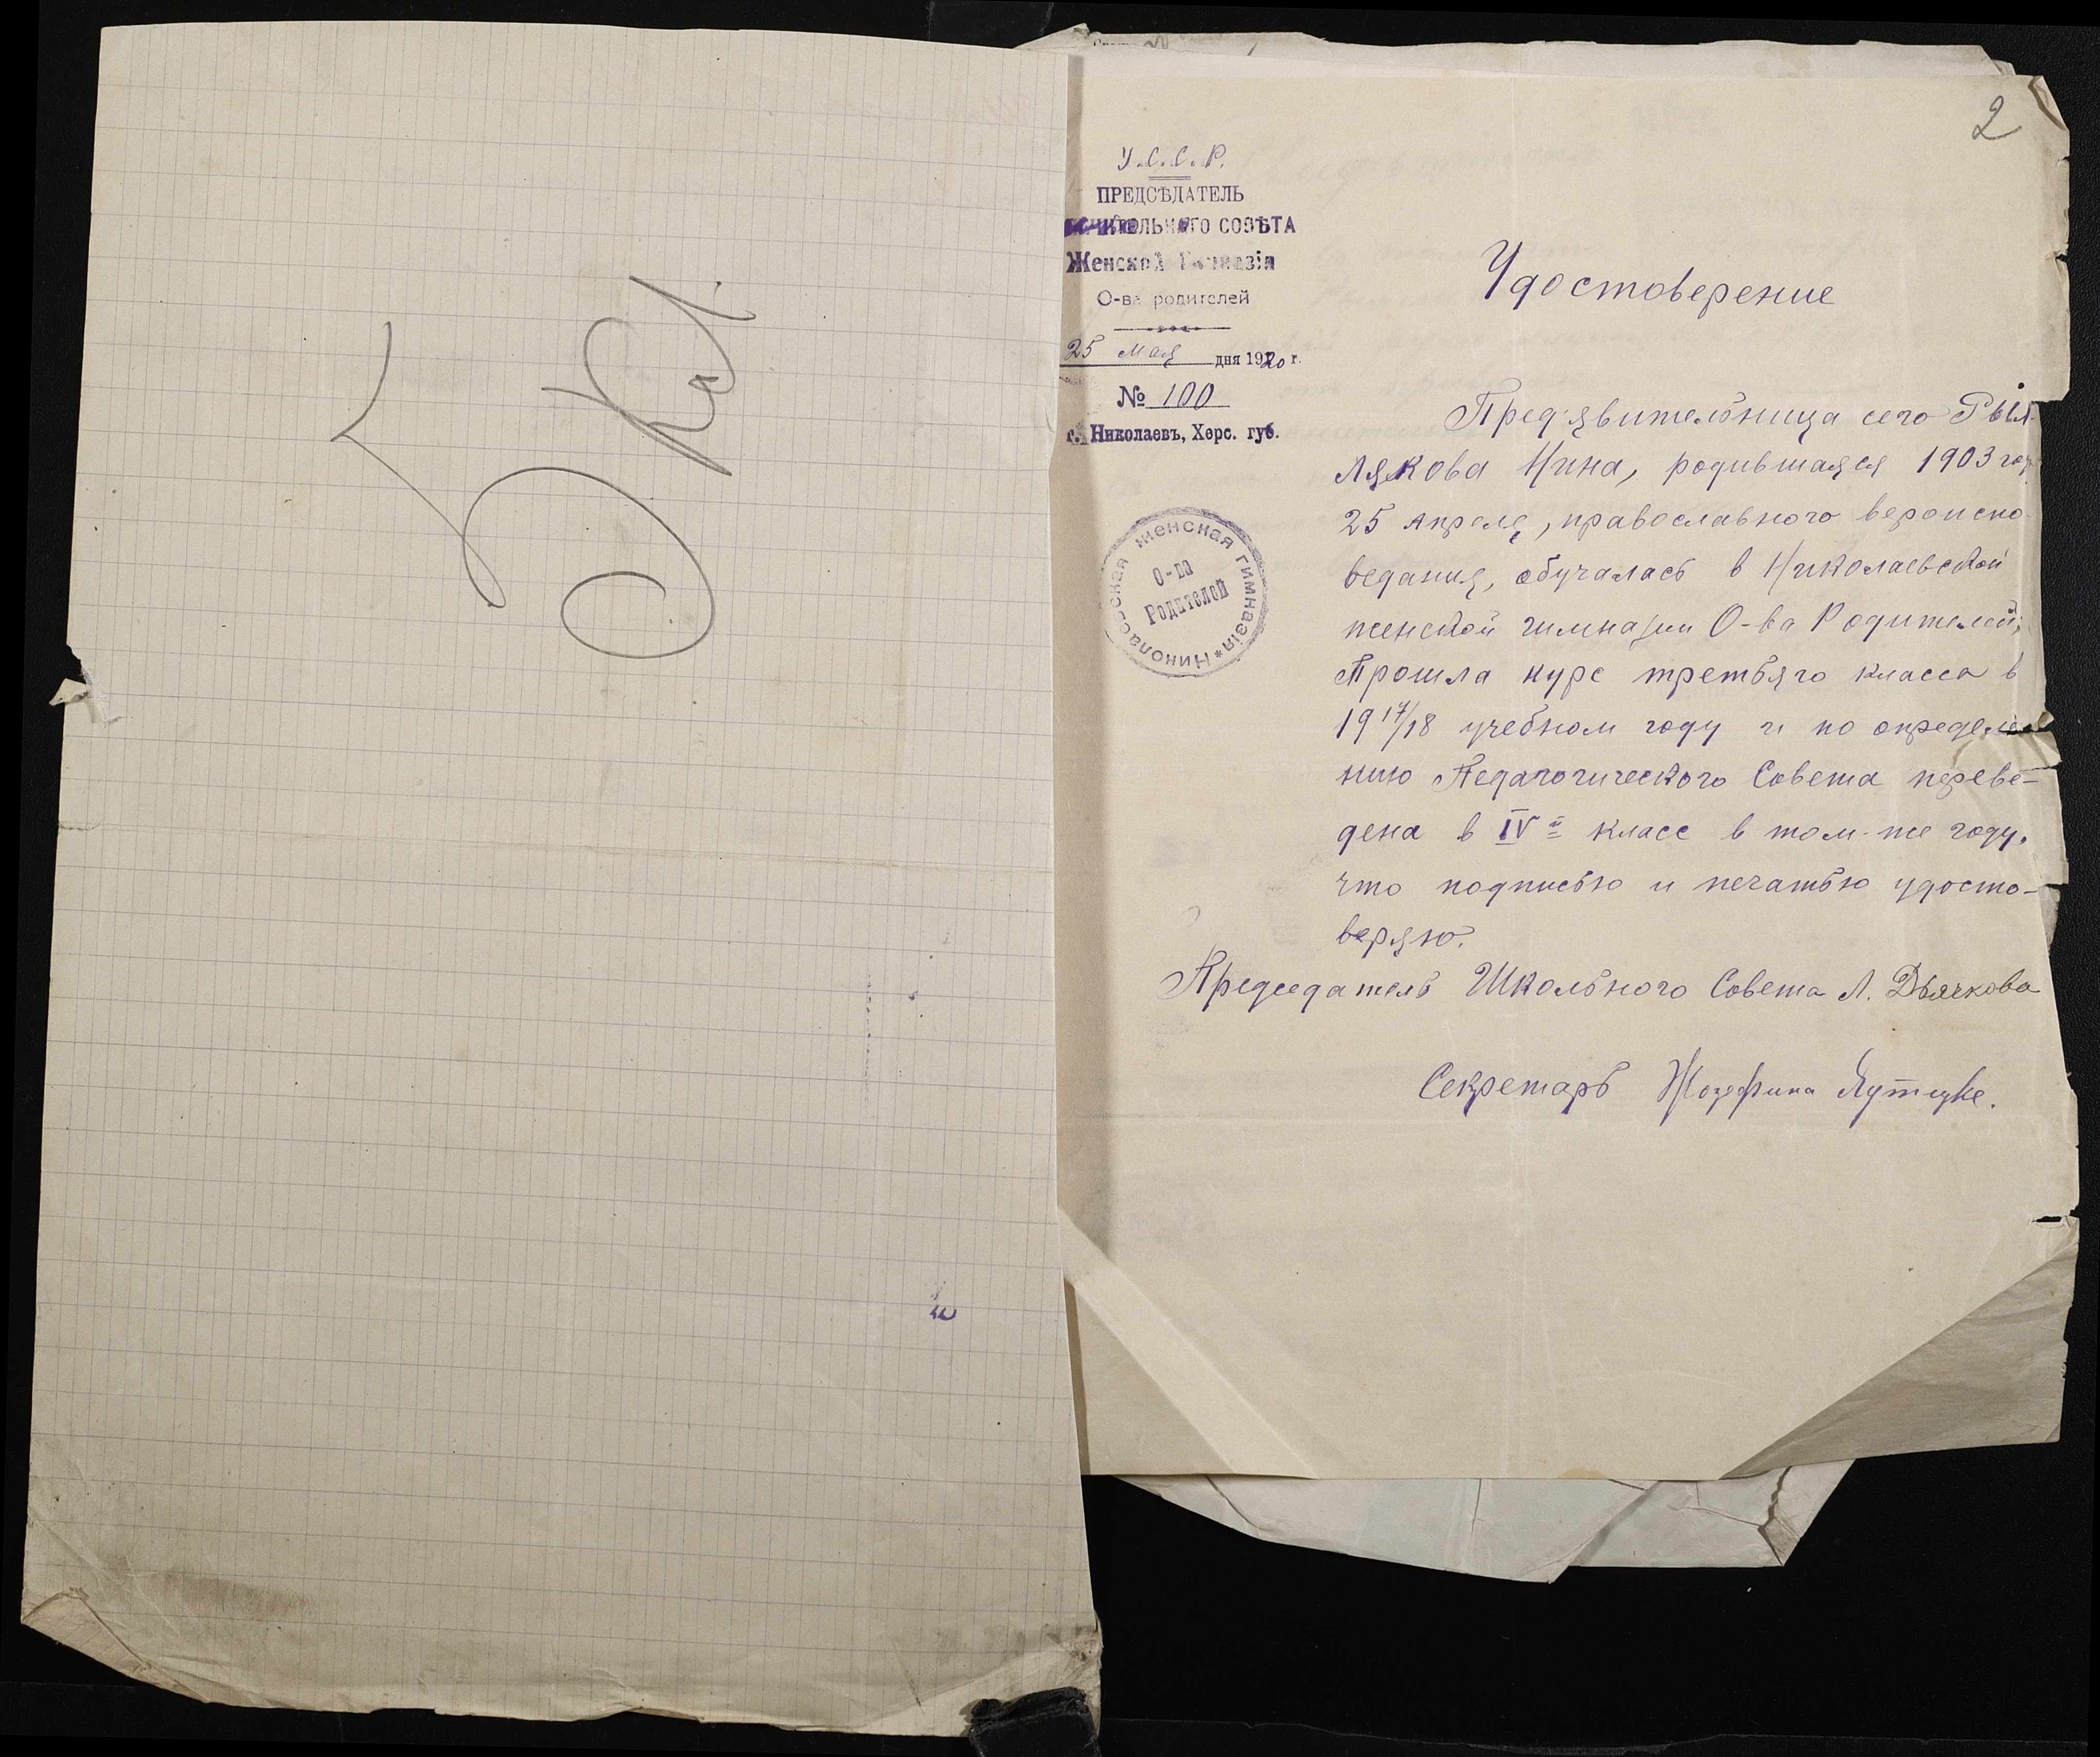 2
У.С.С.Р.
ПРЕДСѢДАТЕЛЬ
СОВѢТА
Женской Гимназіи
О-ва родителей
25 мая дня 1920 г.
№ 100
г. Николаевъ, Херс. губ.
Николаевская женская гимназія
О-ва
Родителей
Удостоверение
Пред'явительница сего Рыл-
лякова Нина, родившаяся 1903 год
25 апреля, православного вероиспо-
ведания, обучалась в Николаевской
женской гимназии О-ва Родителей;
Прошла курс третьяго класса в
19 17/18 учебном году и по определе
нию Педагогического Совета переве-
дена в IV й класс в том-же году,
что подписью и печатью удосто-
веряю.
Председатель Школьного Совета Л. Дьячкова
Секретарь Жозефина